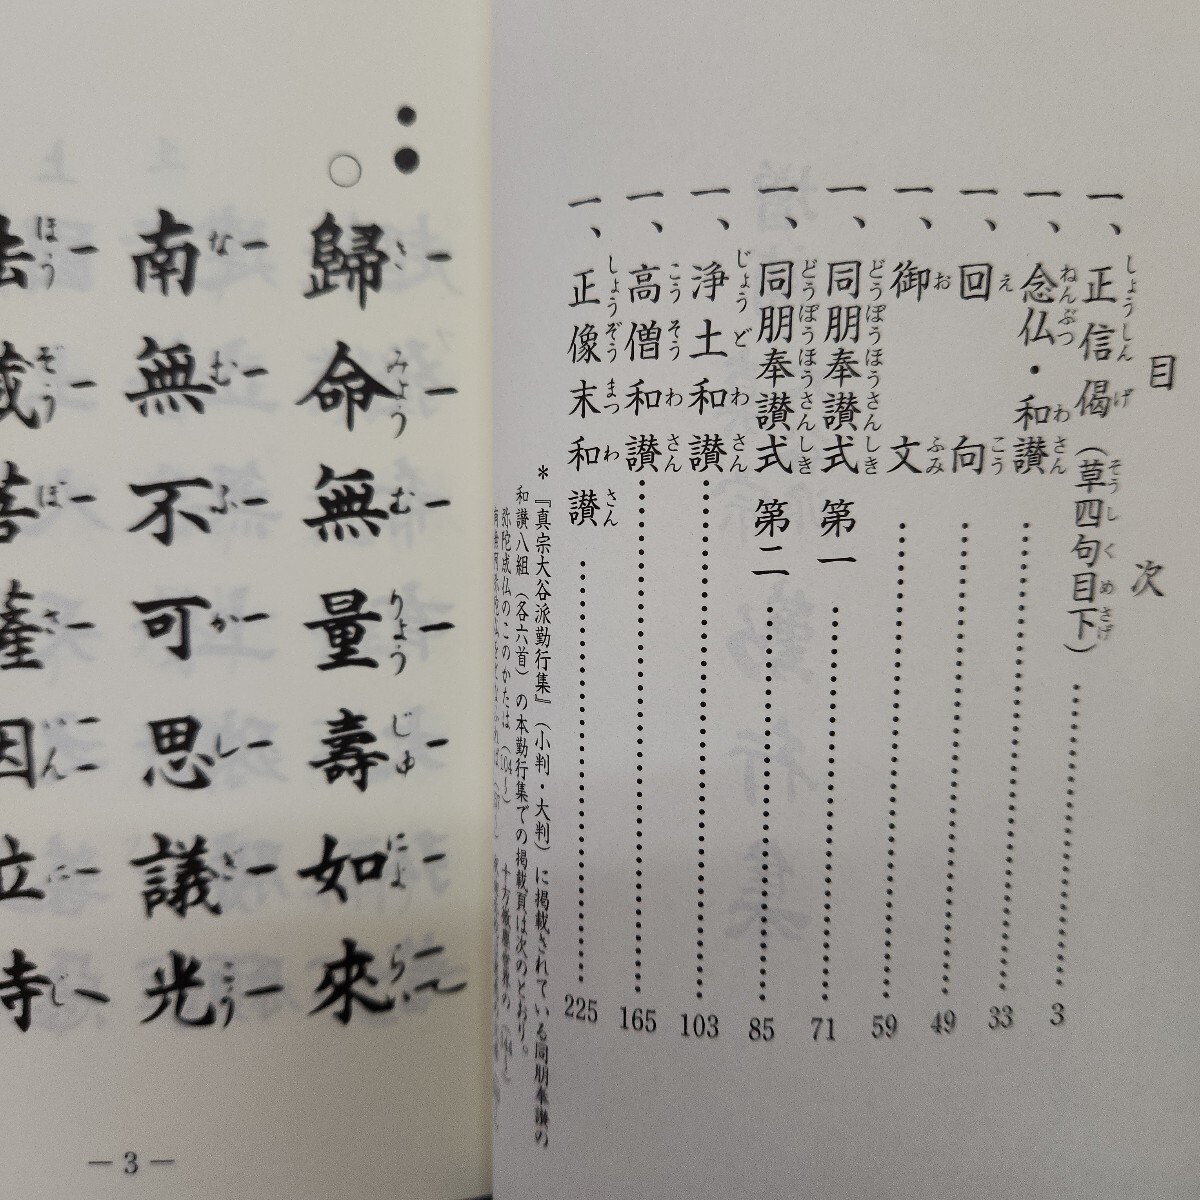 目次
一、正信偈（草四句目下）………3
一、念仏・和讃………33
一、回向………49
一、御文………59
一、同朋奉讃式 第一………71
一、同朋奉讃式 第二………85
一、浄土和讃………103
一、高僧和讃………165
一、正像末和讃………225
＊『真宗大谷派勤行集』（小判・大判）に掲載されている同朋奉讃の
和讃八組（各六首）の本勤行集での掲載頁は次のとおり。
弥陀成仏のこのかたは（104〜）
歸命無量壽如來
南無不可思議光
法蔵菩薩因位時
—3—